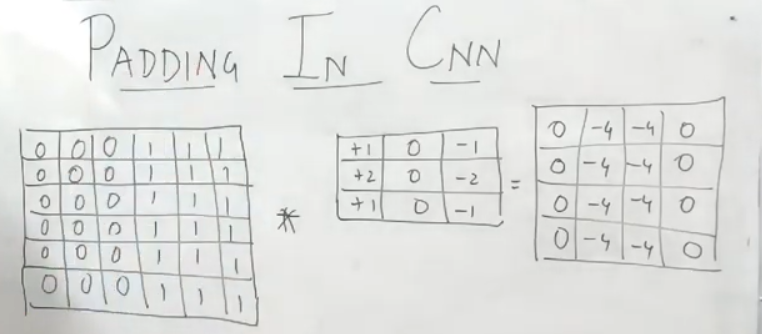 PADDING IN CNN
0 0 0 1 1 1
0 0 0 1 1 1
0 0 0 1 1 1
0 0 0 1 1 1
0 0 0 1 1 1
0 0 0 1 1 1
*
+1 0 -1
+2 0 -2
+1 0 -1
=
0 -4 -4 0
0 -4 -4 0
0 -4 -4 0
0 -4 -4 0